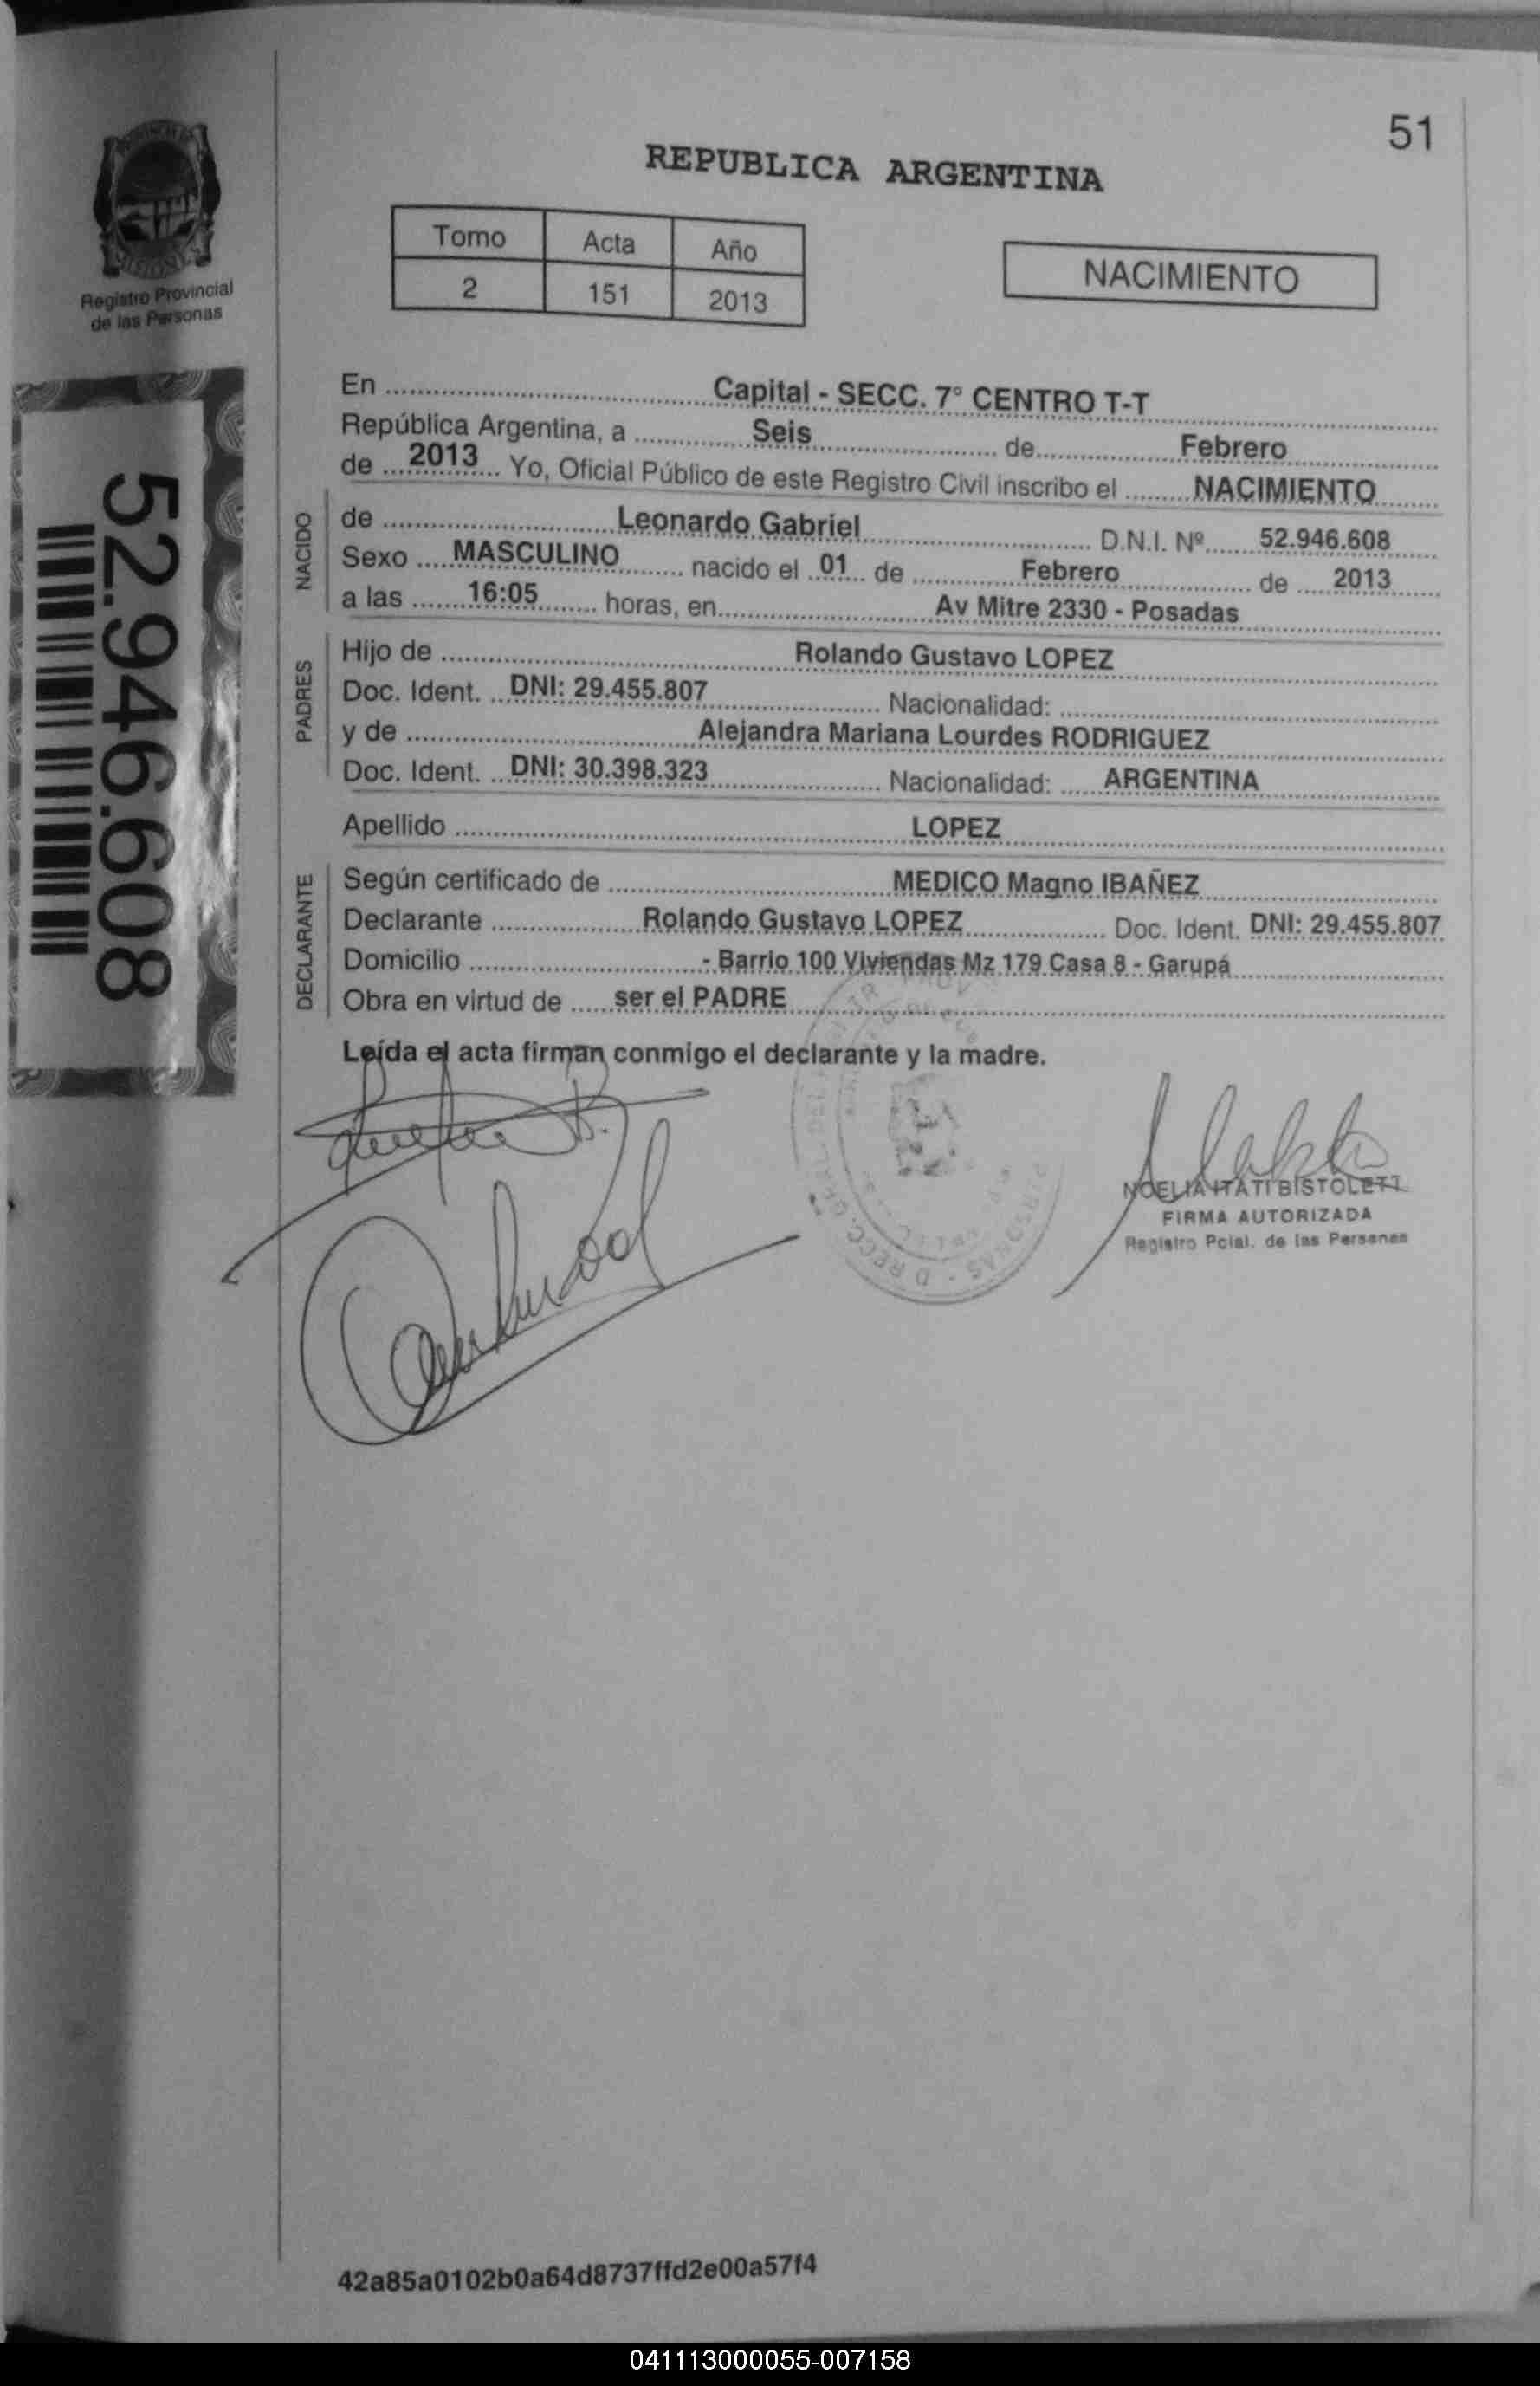 51
REPUBLICA ARGENTINA
Tomo Acta Año
2 151 2013
NACIMIENTO
Registro Provincial
de las Personas
52.946.608
En Capital - SECC. 7° CENTRO T-T
República Argentina, a Seis de Febrero
de 2013 Yo, Oficial Público de este Registro Civil inscribo el NACIMIENTO
NACIDO
de Leonardo Gabriel D.N.I. Nº 52.946.608
Sexo MASCULINO nacido el 01 de Febrero de 2013
a las 16:05 horas, en Av Mitre 2330 - Posadas
PADRES
Hijo de Rolando Gustavo LOPEZ
Doc. Ident. DNI: 29.455.807 Nacionalidad:
y de Alejandra Mariana Lourdes RODRIGUEZ
Doc. Ident. DNI: 30.398.323 Nacionalidad: ARGENTINA
Apellido LOPEZ
DECLARANTE
Según certificado de MEDICO Magno IBAÑEZ
Declarante Rolando Gustavo LOPEZ Doc. Ident. DNI: 29.455.807
Domicilio - Barrio 100 Viviendas Mz 179 Casa 8 - Garupá
Obra en virtud de ser el PADRE
Leída el acta firman conmigo el declarante y la madre.
NOELIA ITATI BISTOLETTI
FIRMA AUTORIZADA
Registro Pcial. de las Personas
42a85a0102b0a64d8737ffd2e00a57f4
041113000055-007158